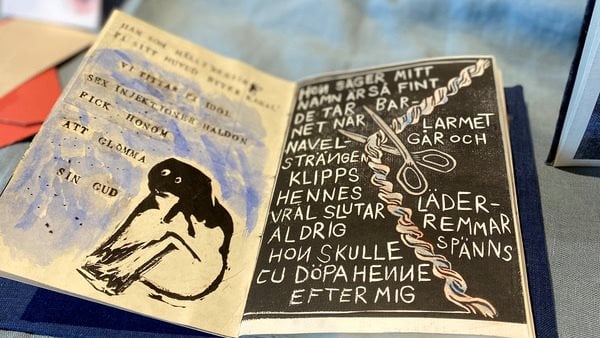 HAN SOM HÄLLT BENSIN
PÅ SITT HUVUD EFTER
VI TITTAR PÅ IDOL
SEX INJEKTIONER HALDOL
FICK HONOM
ATT GLÖMMA
SIN GUD
HON SÄGER MITT
NAMN ÄR SÅ FINT
DE TAR BAR-
NET NÄR
NAVEL-
STRÄNGEN
KLIPPS
HENNES
VRÅL SLUTAR
ALDRIG
HON SKULLE
CU DÖPA HENNE
EFTER MIG
LARMET
GÅR OCH
LÄDER-
REMMAR
SPÄNNS